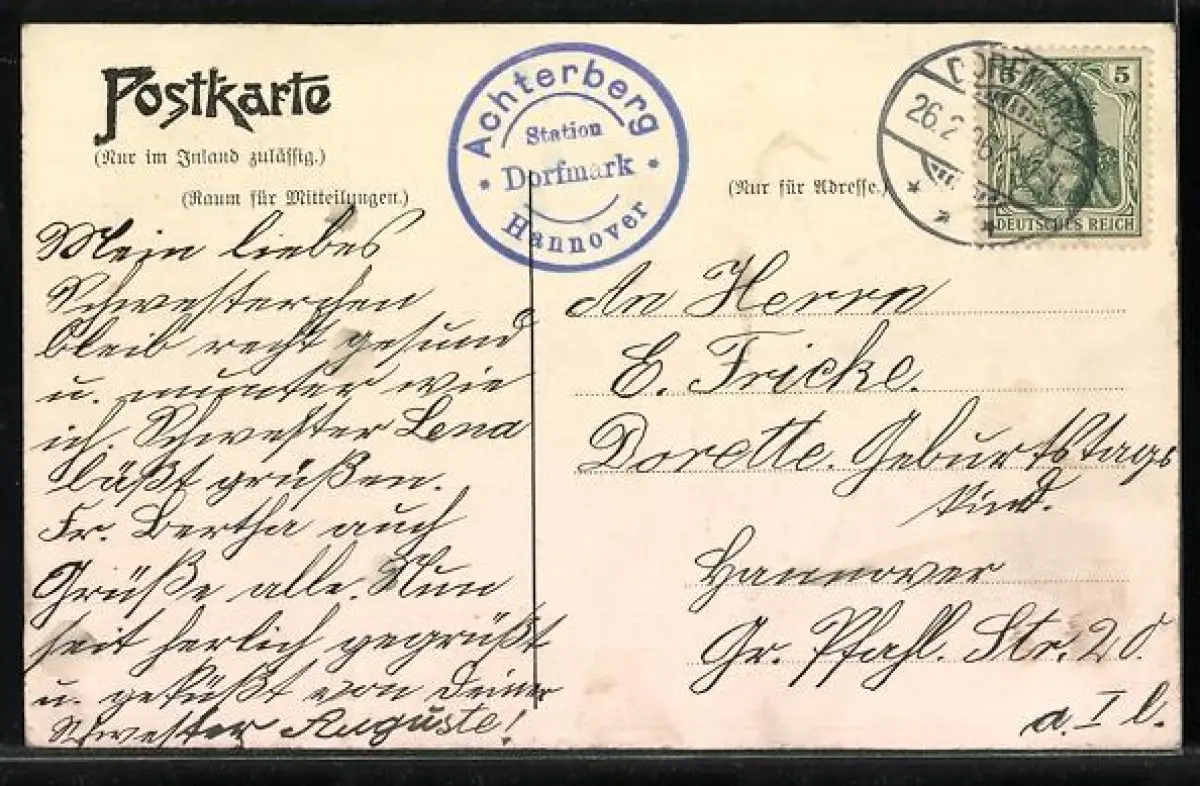 Postkarte
(Nur im Inland zulässig.)
(Raum für Mitteilungen.)
Achterberg
Station
Dorfmark
Hannover
(Nur für Adresse.)
DORFMARK
26.2
5
DEUTSCHES REICH
Mein liebes
Schwesterchen
bleib recht gesund
u. munter wie
ich. Schwester Lena
läßt grüßen.
Fr. Bertha auch
Grüße alle. Nun
seit herlich gegrüßt
u. geküßt von Deiner
Schwester Auguste!
An Herrn
E. Fricke.
Dorette. Geburtstags
kind.
Hannover
Gr. Pfahl. Str. 20.
a. I l.